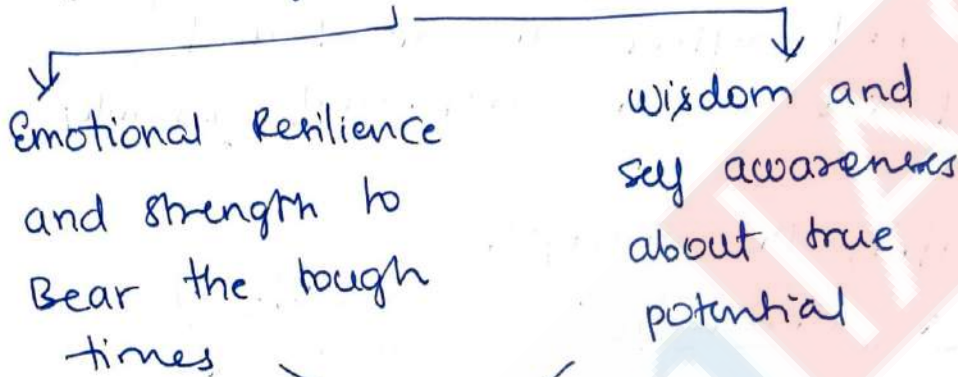 Emotional Resilience
and strength to
Bear the tough
times
wisdom and
self awareness
about true
potential